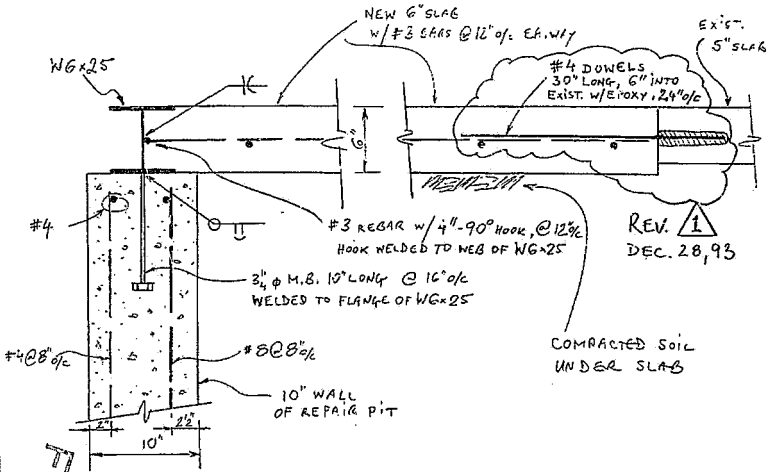 NEW 6" SLAB
W/ #3 BARS @ 12" o/c EA. WAY
EXIST.
5" SLAB
W6x25
#4 DOWELS
30" LONG, 6" INTO
EXIST. W/EPOXY, 24" o/c
6"
#4
#3 REBAR W/ 4"-90° HOOK, @ 12" o/c
HOOK WELDED TO WEB OF W6x25
REV. 1
DEC. 28, 93
3/4" φ M.B. 10" LONG @ 16" o/c
WELDED TO FLANGE OF W6x25
COMPACTED SOIL
UNDER SLAB
#4@8" o/c
#8@8" o/c
10" WALL
OF REPAIR PIT
2"
2 1/2"
10"